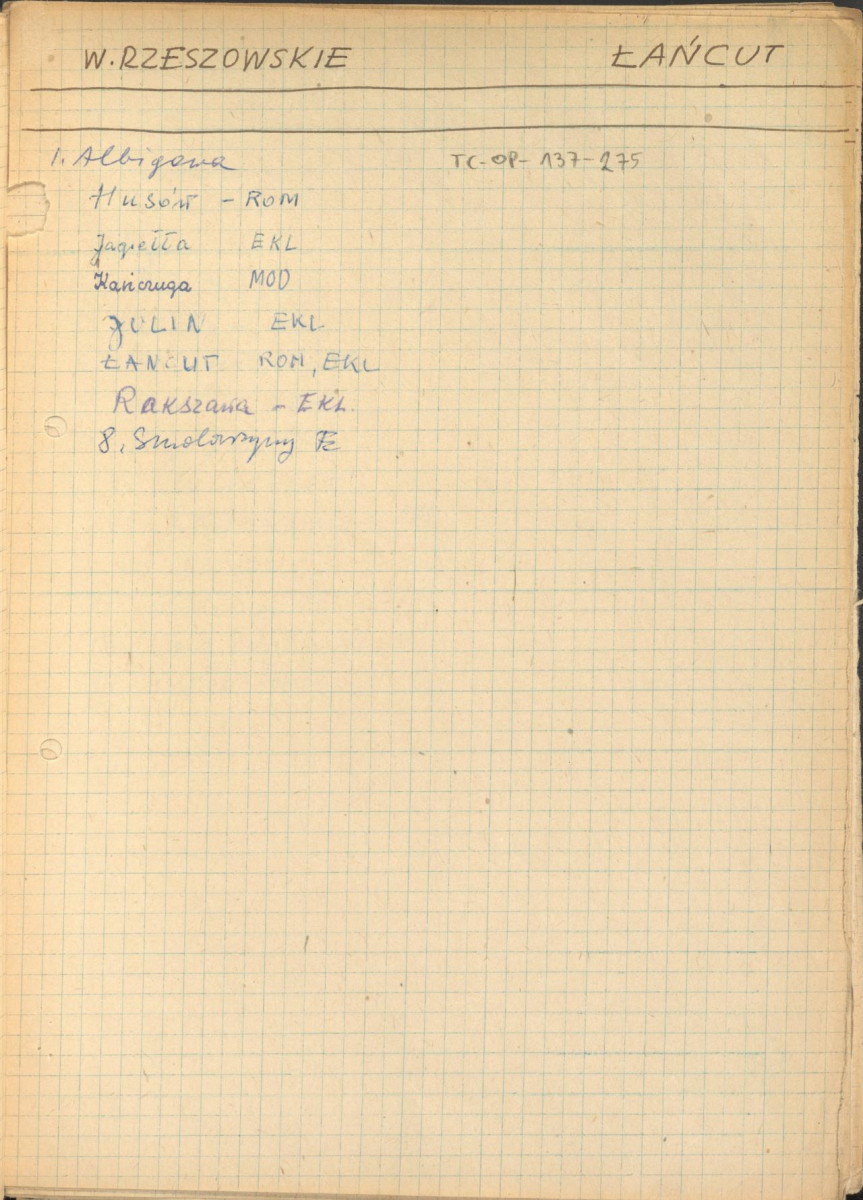 W. RZESZOWSKIE ŁAŃCUT
1. Albigowa TC-OP-137-275
Husów - ROM
Jagiełła EKL
Kańczuga MOD
JULIN EKL
ŁANCUT ROM, EKL
Rakszawa - EKL.
8. Smolarzyny